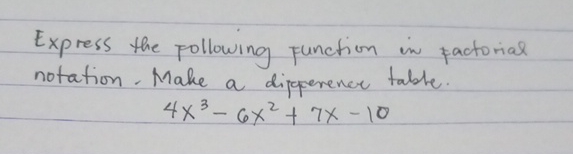 Express the following function in factorial
notation. Make a difference table.
4x³ - 6x² + 7x - 10